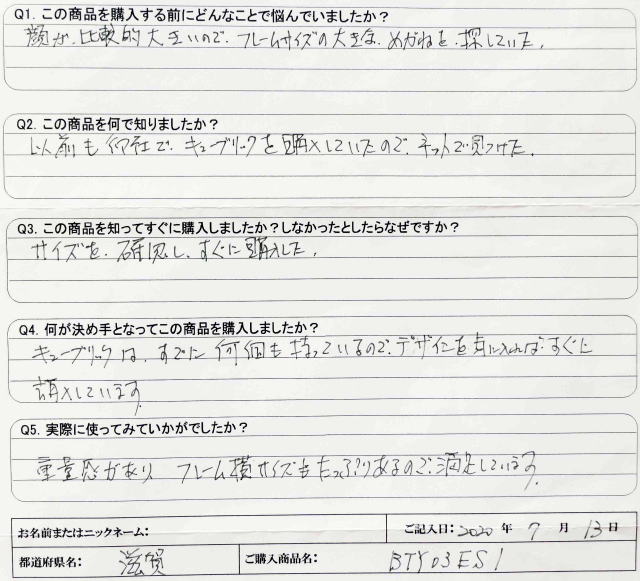 Q1. この商品を購入する前にどんなことで悩んでいましたか？
顔が、比較的大きいので、フレームサイズの大きな、めがねを、探していた。
Q2. この商品を何で知りましたか？
以前も御社で、キューブリックを購入していたので、ネットで見つけた。
Q3. この商品を知ってすぐに購入しましたか？しなかったとしたらなぜですか？
サイズを、確認し、すぐに購入した。
Q4. 何が決め手となってこの商品を購入しましたか？
キューブリックは、すでに何個も持っているので、デザインを気に入れば、すぐに
購入しています。
Q5. 実際に使ってみていかがでしたか？
重量感があり、フレーム横サイズもたっぷりあるので、満足しています。
お名前またはニックネーム：
ご記入日：2020 年 7 月 13 日
都道府県名： 滋賀
ご購入商品名： BTY03ES1